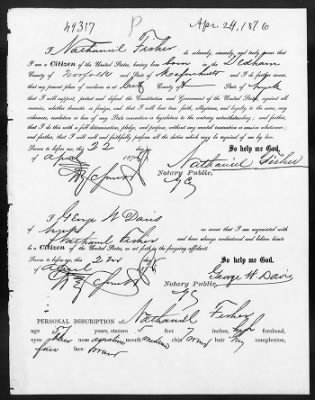 49317 P Apr. 24, 1876
I Nathaniel Fisher do solemnly, sincerely, and truly swear that
I am a Citizen of the United States, having been born in Dedham
County of Norfolk and State of Massachusetts and I do further swear
that my present place of residence is at County of State of
that I will support, protect and defend the Constitution and Government of the United States, against all
enemies, whether domestic or foreign, and that I will bear true faith, allegiance, and loyalty to the same, any
ordinance, resolution or law of any State convention or legislature to the contrary notwithstanding; and further,
that I do this with a full determination, pledge, and purpose, without any mental reservation or evasion whatsoever;
and further, that I will well and faithfully perform all the duties which may be required of me by law.
Sworn to before me, this 22 day So help me God,
of April 187 Nathaniel Fisher
Notary Public.
I George W Davis
am acquainted with
Nathaniel Fisher and have always understood and believe him
to be a Citizen of the United States, as set forth in the foregoing affidavit.
Sworn to before me, this 22 day So help me God.
of April 187 George W. Davis
Notary Public.
PERSONAL DESCRIPTION of Nathaniel Fisher
age years, stature 5 feet 7 inches, high forehead,
eyes nose mouth medium chin round hair Grey complexion,
fair face